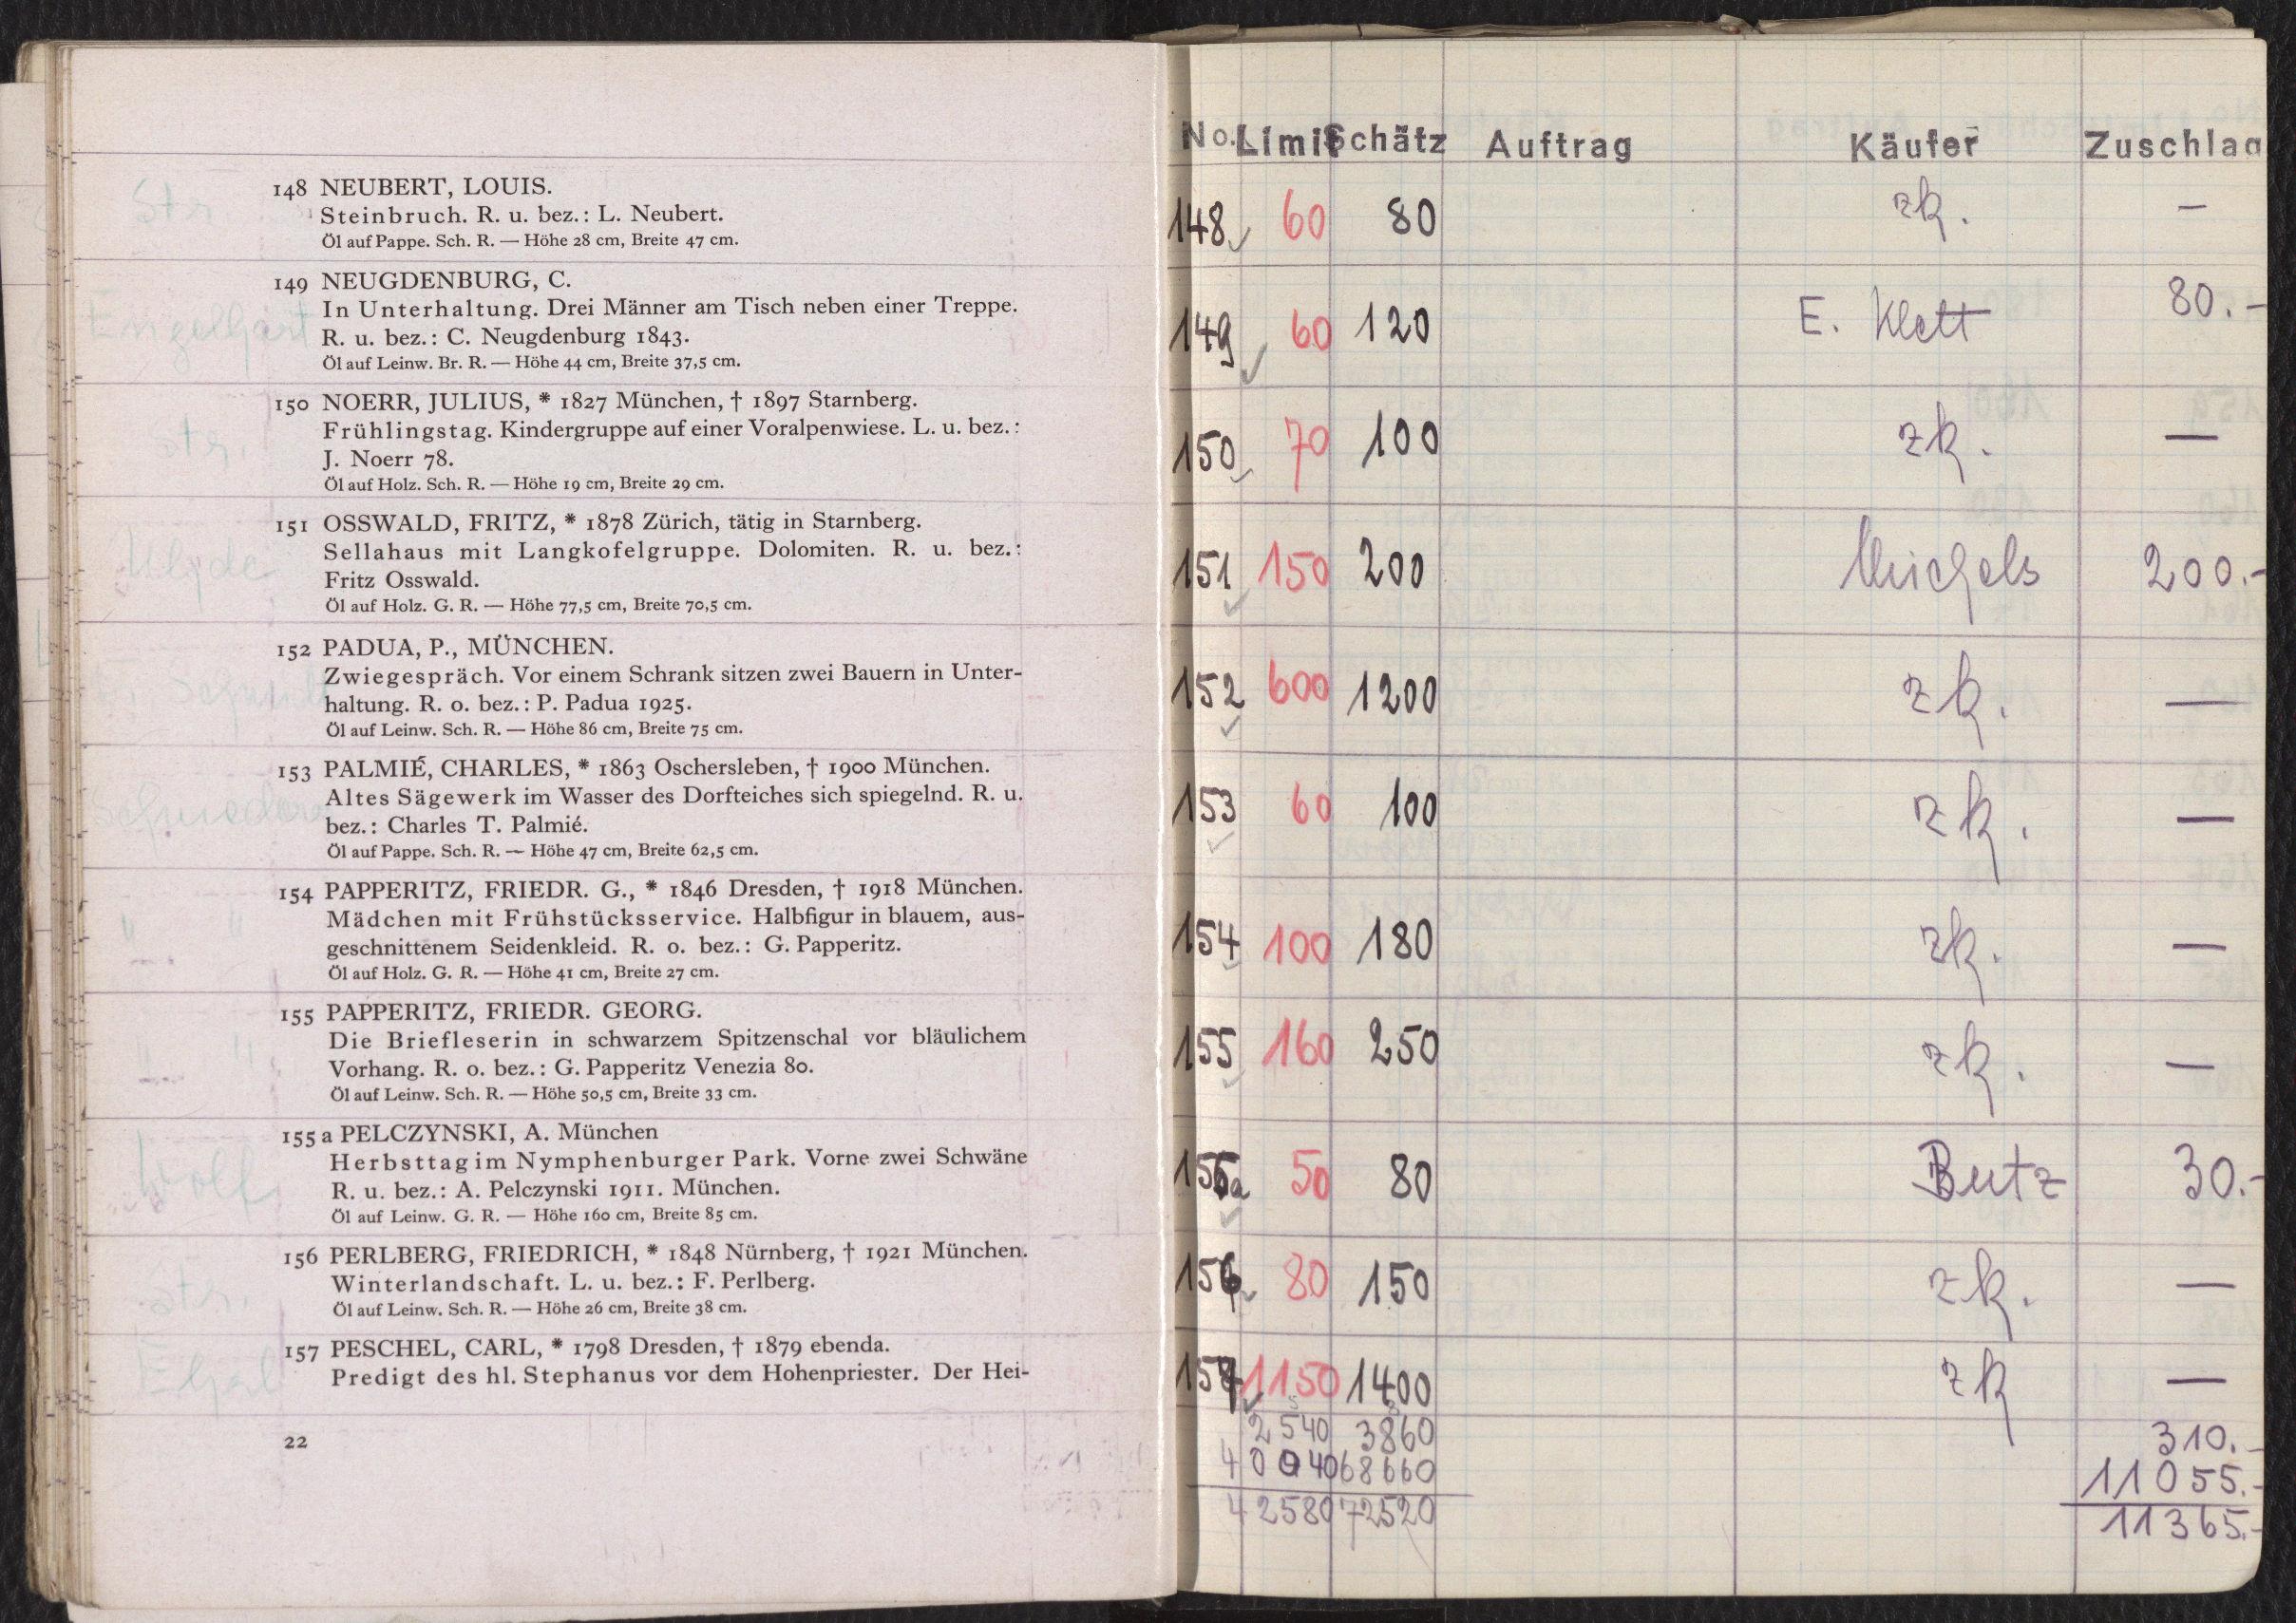 148 NEUBERT, LOUIS.
Steinbruch. R. u. bez.: L. Neubert.
Öl auf Pappe. Sch. R. — Höhe 28 cm, Breite 47 cm.
149 NEUGDENBURG, C.
In Unterhaltung. Drei Männer am Tisch neben einer Treppe.
R. u. bez.: C. Neugdenburg 1843.
Öl auf Leinw. Br. R. — Höhe 44 cm, Breite 37,5 cm.
150 NOERR, JULIUS, * 1827 München, † 1897 Starnberg.
Frühlingstag. Kindergruppe auf einer Voralpenwiese. L. u. bez.:
J. Noerr 78.
Öl auf Holz. Sch. R. — Höhe 19 cm, Breite 29 cm.
151 OSSWALD, FRITZ, * 1878 Zürich, tätig in Starnberg.
Sellahaus mit Langkofelgruppe. Dolomiten. R. u. bez.:
Fritz Osswald.
Öl auf Holz. G. R. — Höhe 77,5 cm, Breite 70,5 cm.
152 PADUA, P., MÜNCHEN.
Zwiegespräch. Vor einem Schrank sitzen zwei Bauern in Unter-
haltung. R. o. bez.: P. Padua 1925.
Öl auf Leinw. Sch. R. — Höhe 86 cm, Breite 75 cm.
153 PALMIÉ, CHARLES, * 1863 Oschersleben, † 1900 München.
Altes Sägewerk im Wasser des Dorfteiches sich spiegelnd. R. u.
bez.: Charles T. Palmié.
Öl auf Pappe. Sch. R. — Höhe 47 cm, Breite 62,5 cm.
154 PAPPERITZ, FRIEDR. G., * 1846 Dresden, † 1918 München.
Mädchen mit Frühstücksservice. Halbfigur in blauem, aus-
geschnittenem Seidenkleid. R. o. bez.: G. Papperitz.
Öl auf Holz. G. R. — Höhe 41 cm, Breite 27 cm.
155 PAPPERITZ, FRIEDR. GEORG.
Die Briefleserin in schwarzem Spitzenschal vor bläulichem
Vorhang. R. o. bez.: G. Papperitz Venezia 80.
Öl auf Leinw. Sch. R. — Höhe 50,5 cm, Breite 33 cm.
155 a PELCZYNSKI, A. München
Herbsttag im Nymphenburger Park. Vorne zwei Schwäne
R. u. bez.: A. Pelczynski 1911. München.
Öl auf Leinw. G. R. — Höhe 160 cm, Breite 85 cm.
156 PERLBERG, FRIEDRICH, * 1848 Nürnberg, † 1921 München.
Winterlandschaft. L. u. bez.: F. Perlberg.
Öl auf Leinw. Sch. R. — Höhe 26 cm, Breite 38 cm.
157 PESCHEL, CARL, * 1798 Dresden, † 1879 ebenda.
Predigt des hl. Stephanus vor dem Hohenpriester. Der Hei-
22
Str
Engelhart
Str.
Schmidt
" "
" "
Wolf
Str.
No. Limit Schätz Auftrag Käufer Zuschlag
148 60 80 zk. —
149 60 120 E. Klett 80.-
150 70 100 zk. —
151 150 200 Michels 200.-
152 600 1200 zk. —
153 60 100 zk. —
154 100 180 zk. —
155 160 250 zk. —
155a 50 80 Butz 30.-
156 80 150 zk. —
157 1150 1400 zk —
2540 3860 310.-
40040 68660 11055.-
42580 72520 11365.-